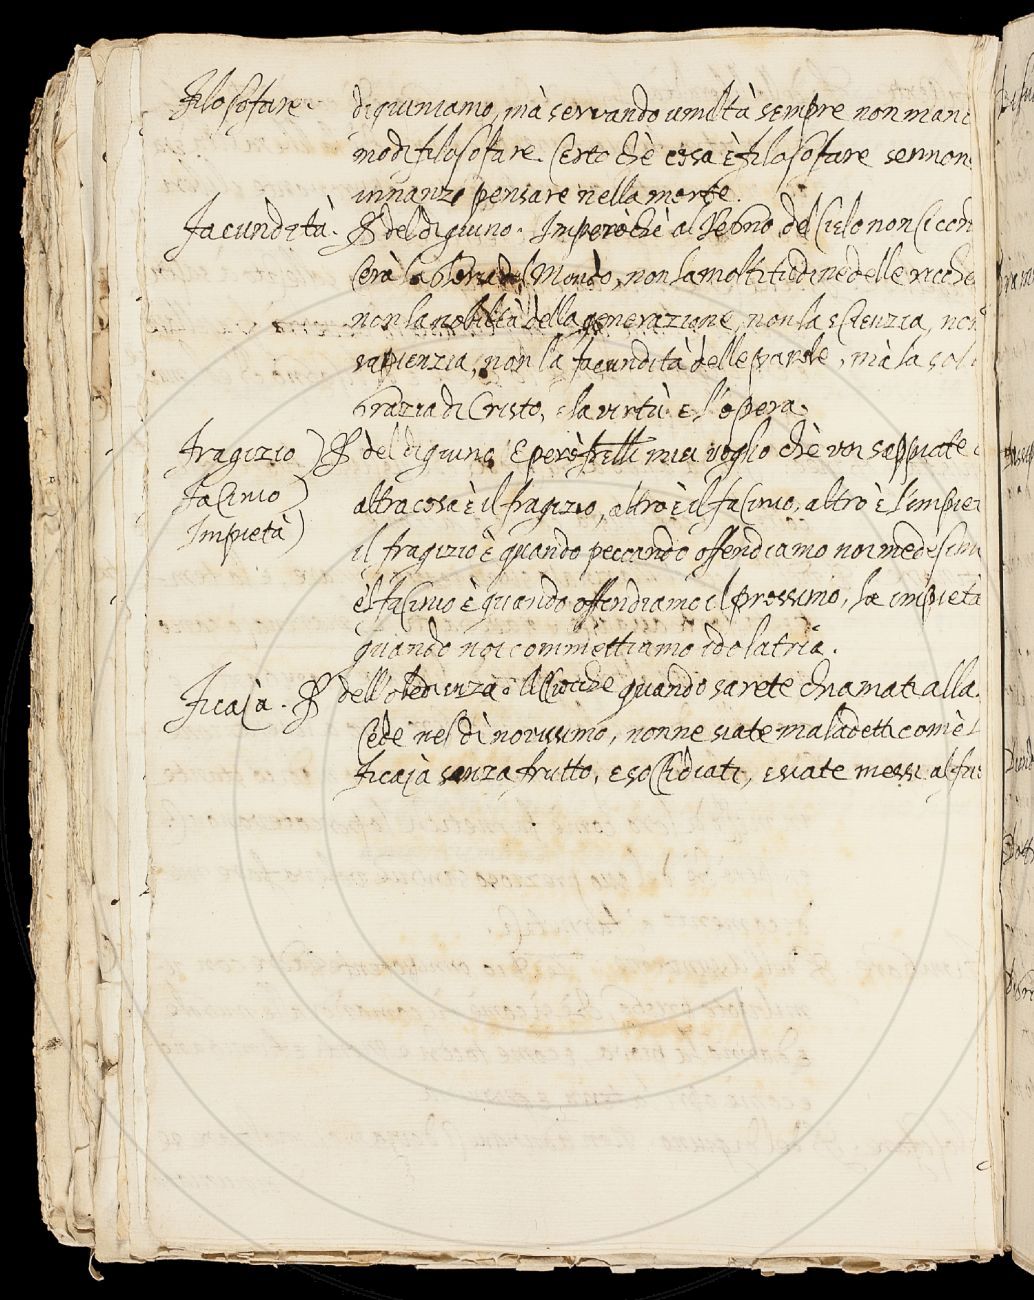 Filosofare diguniamo, mà servando umiltà sempre non manc
modi filosofare. Certo chè essa è filosofare sennon
innanzi pensare nella morte.
Facundità. S. del diguno. Imperò chè al Regno del Cielo non ci con
cerà la gloria del Mondo, non la moltitudine delle ricche
non la nobiltà della generazione, non la scienzia, non
sapienzia, non la facundità delle parole, mà la sol
grazia di Cristo, e la virtù e l'opera.
Fragizio) S. del diguno. E però frelli miei voglio chè voi sappiate
Facinio) altra cosa è il fragizio, altro è il facinio, altro è l'impie
Impietà) il fragizio è quando peccando offendiamo noi medesimi
el facinio è quando offendiamo il prossimo, la impietà
quando noi commettiamo idolatria.
Ficaja. S. dell'obedienza. quando sarete chiamati alla
Cede nel dì novissimo, nonne siate maladetti comè l
ficaja sanza frutto, e soccidiati, e siate messi al fu